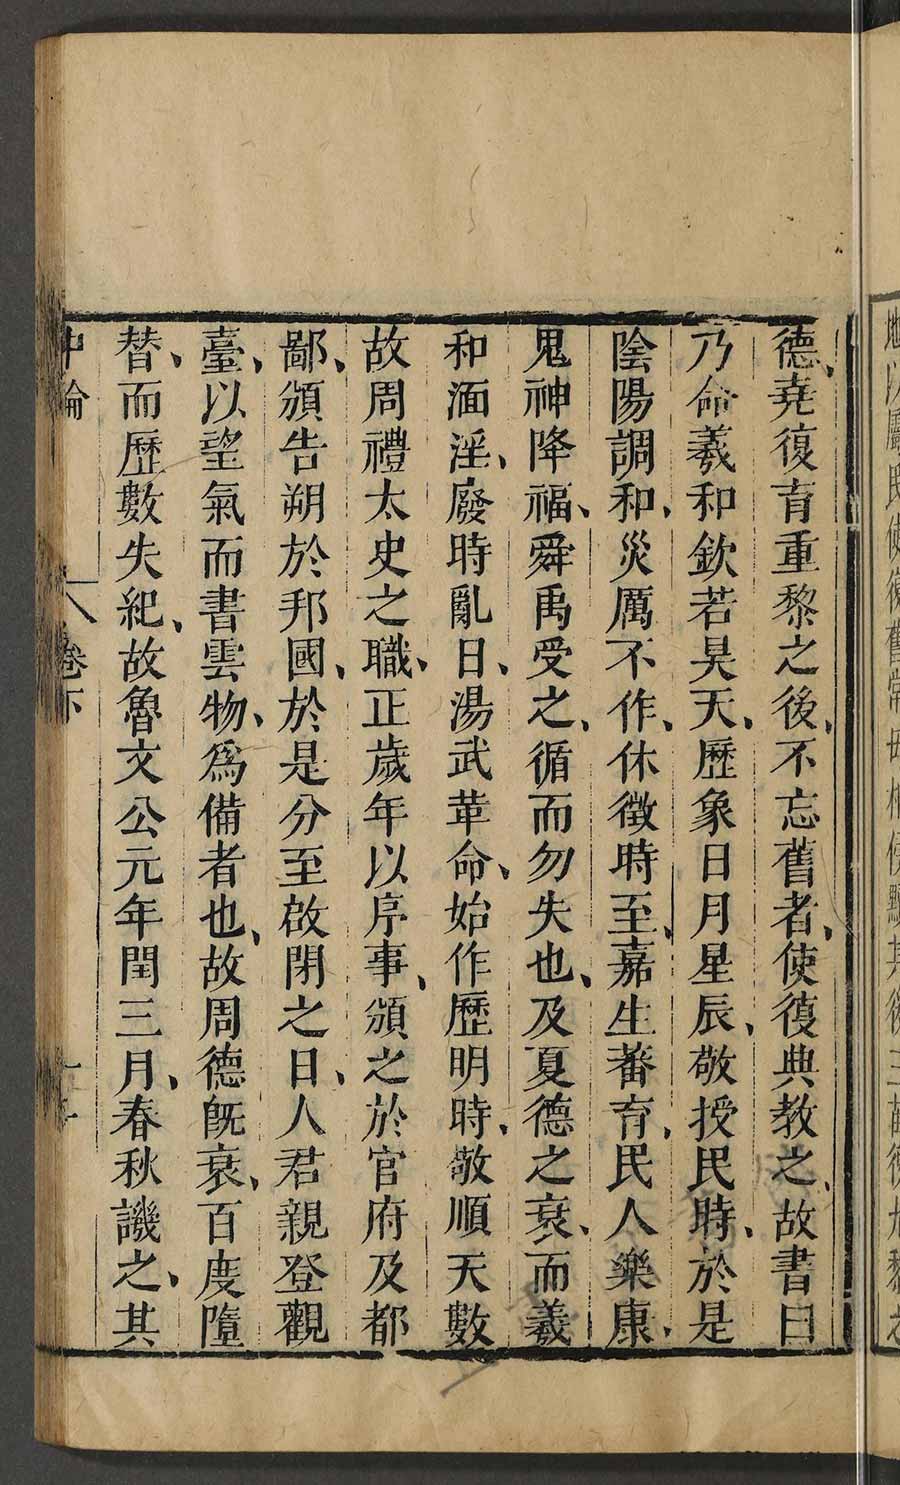 德、堯復育重黎之後、不忘舊者、使復典教之、故書曰
乃命羲和欽若昊天、歷象日月星辰、敬授民時、於是
陰陽調和、災厲不作、休徵時至、嘉生蕃育、民人樂康、
鬼神降福、舜禹受之、循而勿失也、及夏德之衰、而羲
和湎淫、廢時亂日、湯武革命、始作歷明時、敬順天數
故周禮太史之職、正歲年以序事、頒之於官府及都
鄙、頒告朔於邦國、於是分至啟閉之日、人君親登觀
臺、以望氣而書雲物、爲備者也、故周德旣衰、百度墮
替、而歷數失紀、故魯文公元年閏三月、春秋譏之、其
中論 卷下